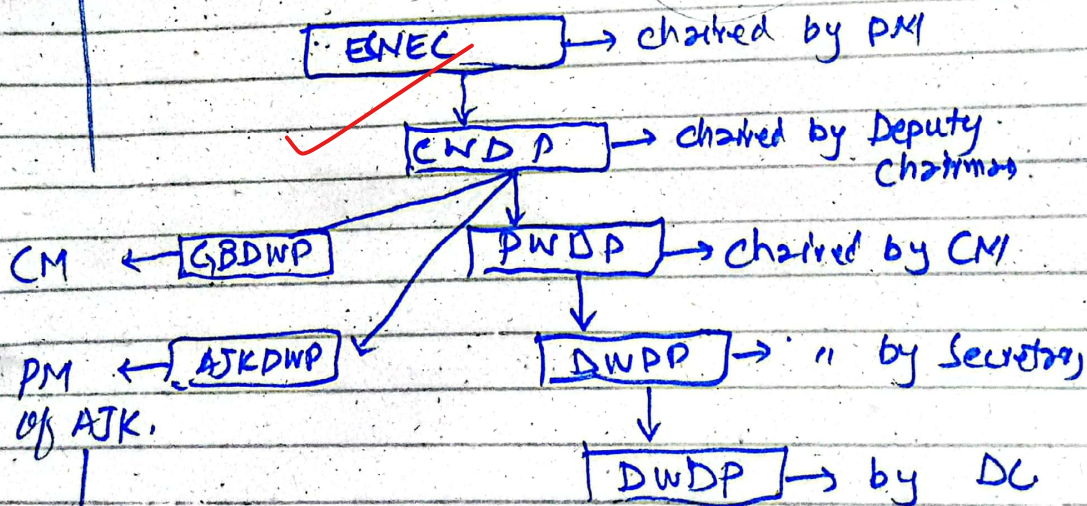 ECNEC → chaired by PM
CWDP → chaired by Deputy
chairman
CM ← GBDWP PWDP → chaired by CM
PM ← AJKDWP DWDP → " by Secretary
of AJK.
DWDP → by DC